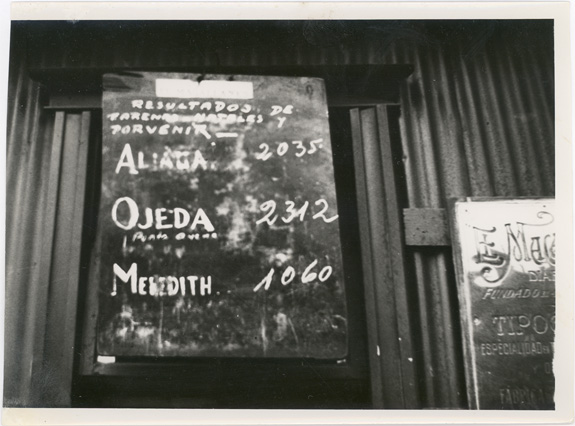 RESULTADOS. DE
NATALES Y
PORVENIR
ALIAGA 2035
OJEDA 2312
MEREDITH 1060
El Mag
DIA
FUNDADO E
TIPO
ESPECIALIDAD